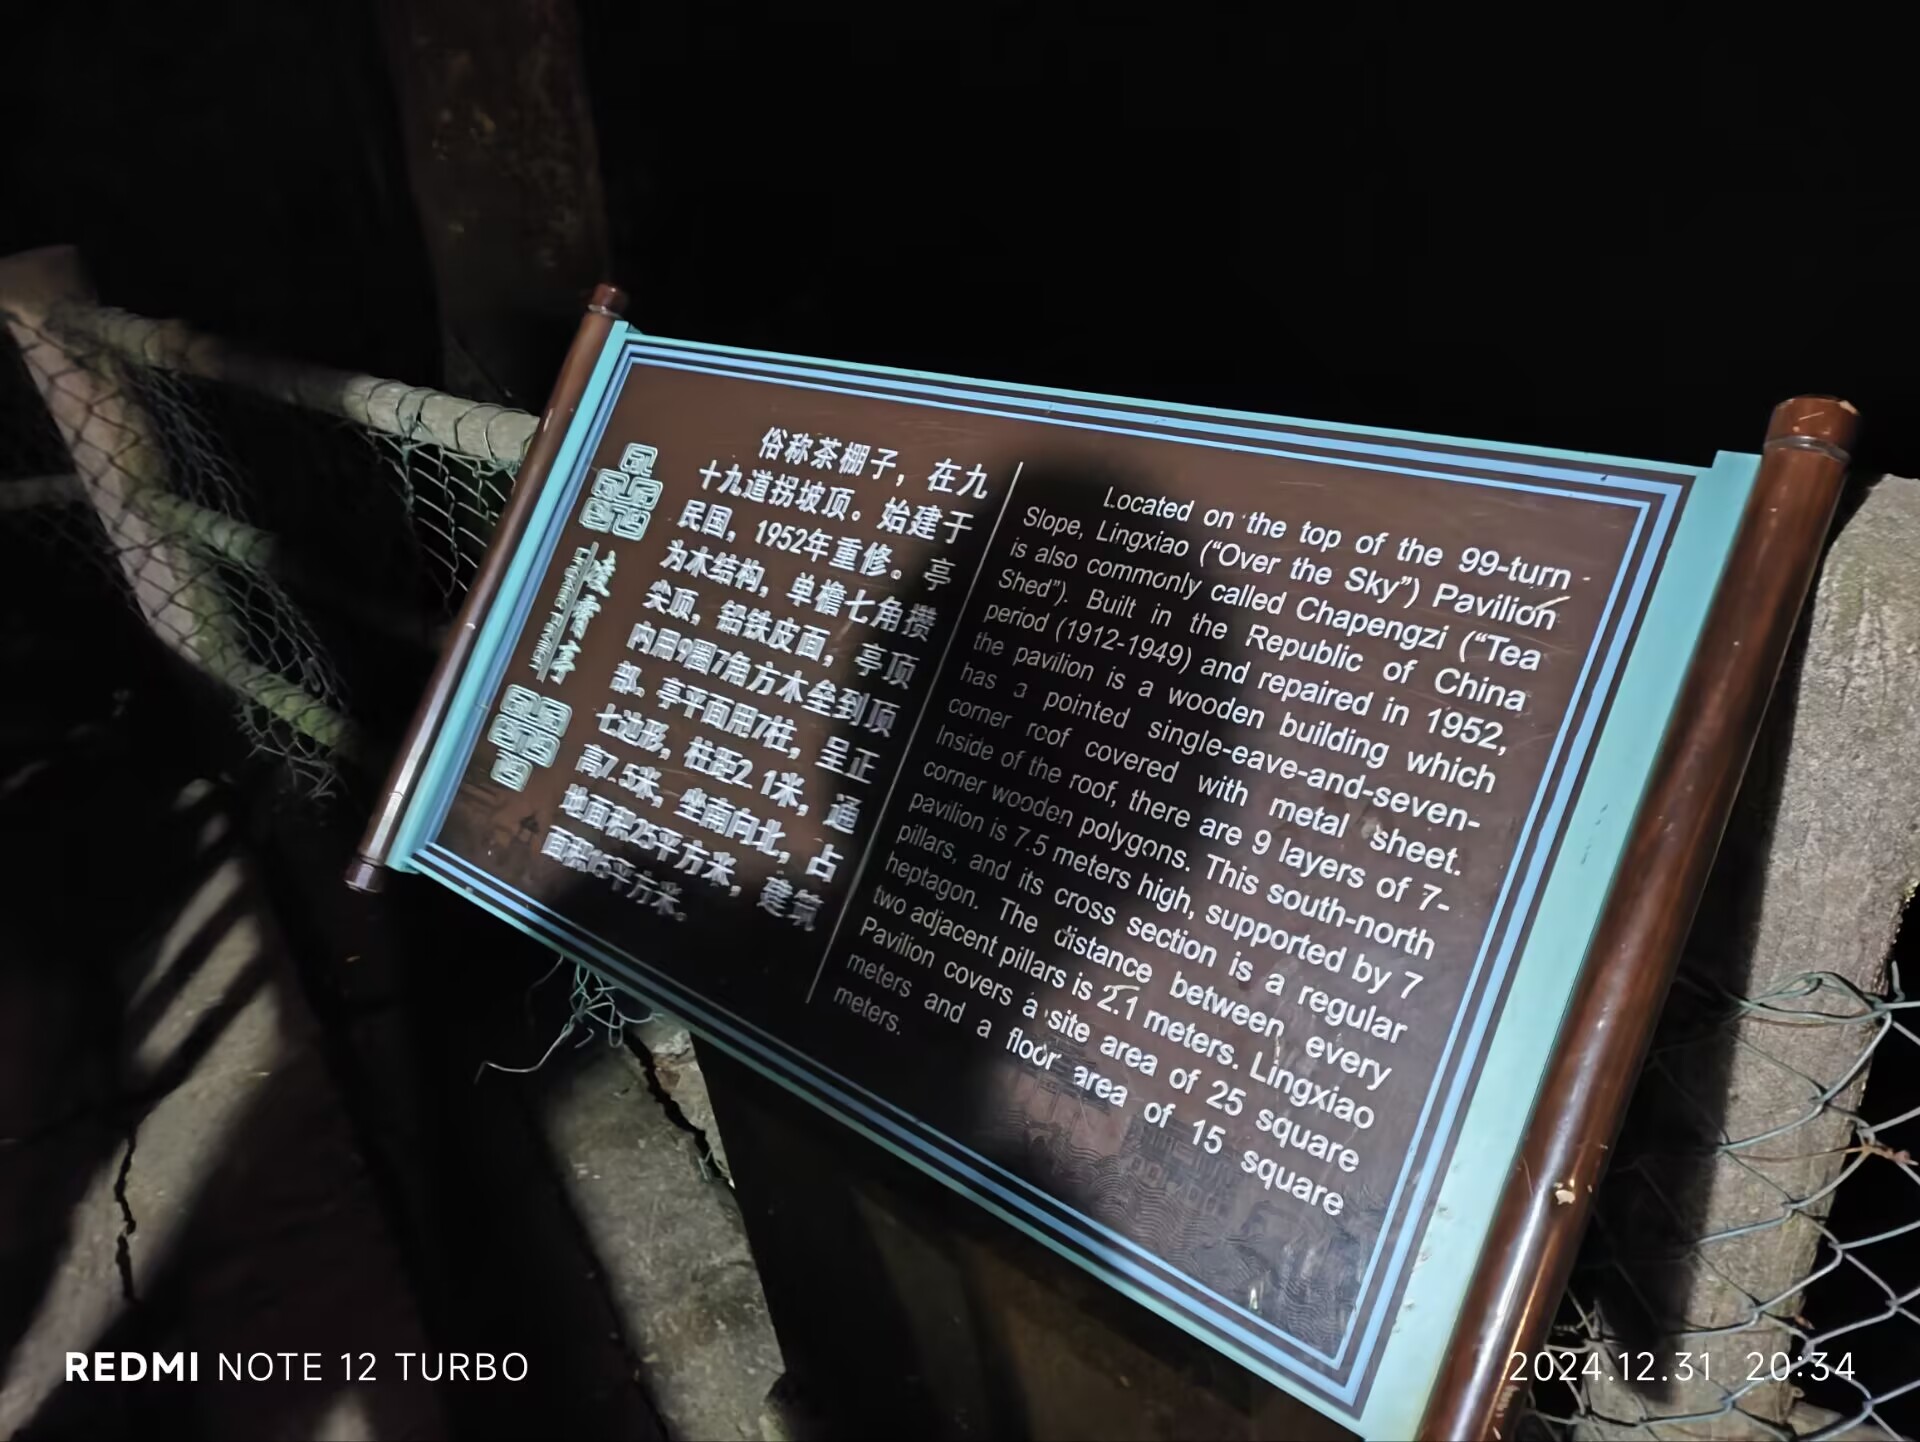 凌霄亭
LINGXIAO PAVILION
俗称茶棚子，在九
十九道拐坡顶。始建于
民国，1952年重修。亭
为木结构，单檐七角攒
尖顶，铝铁皮面，亭顶
内用9圈7角方木垒到顶
部。亭平面用7柱，呈正
七边形，柱距2.1米，通
高7.5米，坐南向北，占
地面积25平方米，建筑
面积 平方米。
Located on the top of the 99-turn
Slope, Lingxiao (“Over the Sky”) Pavilion
is also commonly called Chapengzi (“Tea
Shed”). Built in the Republic of China
period (1912-1949) and repaired in 1952,
the pavilion is a wooden building which
has a pointed single-eave-and-seven-
corner roof covered with metal sheet.
Inside of the roof, there are 9 layers of 7-
corner wooden polygons. This south-north
pavilion is 7.5 meters high, supported by 7
pillars, and its cross section is a regular
heptagon. The distance between every
two adjacent pillars is 2.1 meters. Lingxiao
Pavilion covers a site area of 25 square
meters and a floor area of 15 square
meters.
REDMI NOTE 12 TURBO
2024.12.31 20:34